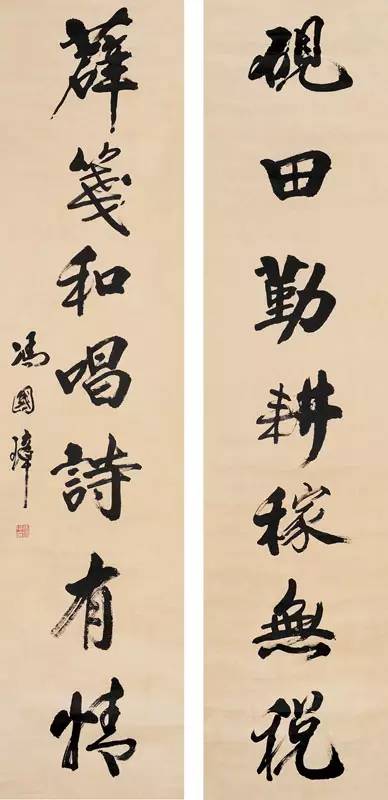 硯田勤耕稼無税
薜箋和唱詩有情
馮國璋